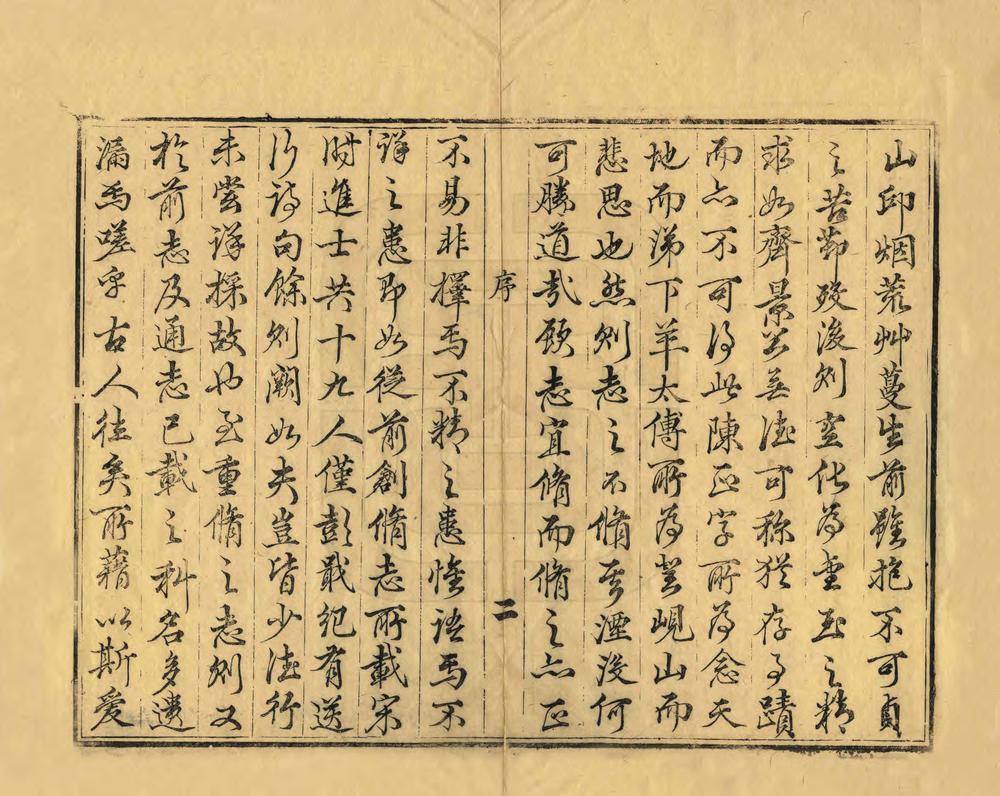 山邱烟荒艸蔓生前雖抱不可貞
之苦節歿後則空化為玉之精
求如齊景公無德可称猶存蹟
而亦不可得此陳正字所為念天
地而涕下羊太傅所為登峴山而
悲思也然則志之不脩其湮没何
可勝道哉顧志宜脩而脩之亦正
序
二
不易非擇焉不精之患惟語焉不
詳之患即如從前創脩志所載宋
時進士共十九人僅彭戢紀有送
行詩句餘則闕如夫豈皆少德行
未嘗詳採故也至重脩之志則又
於前志及通志已載之科名多遺
漏焉嗟乎古人往矣所藉以斯爱